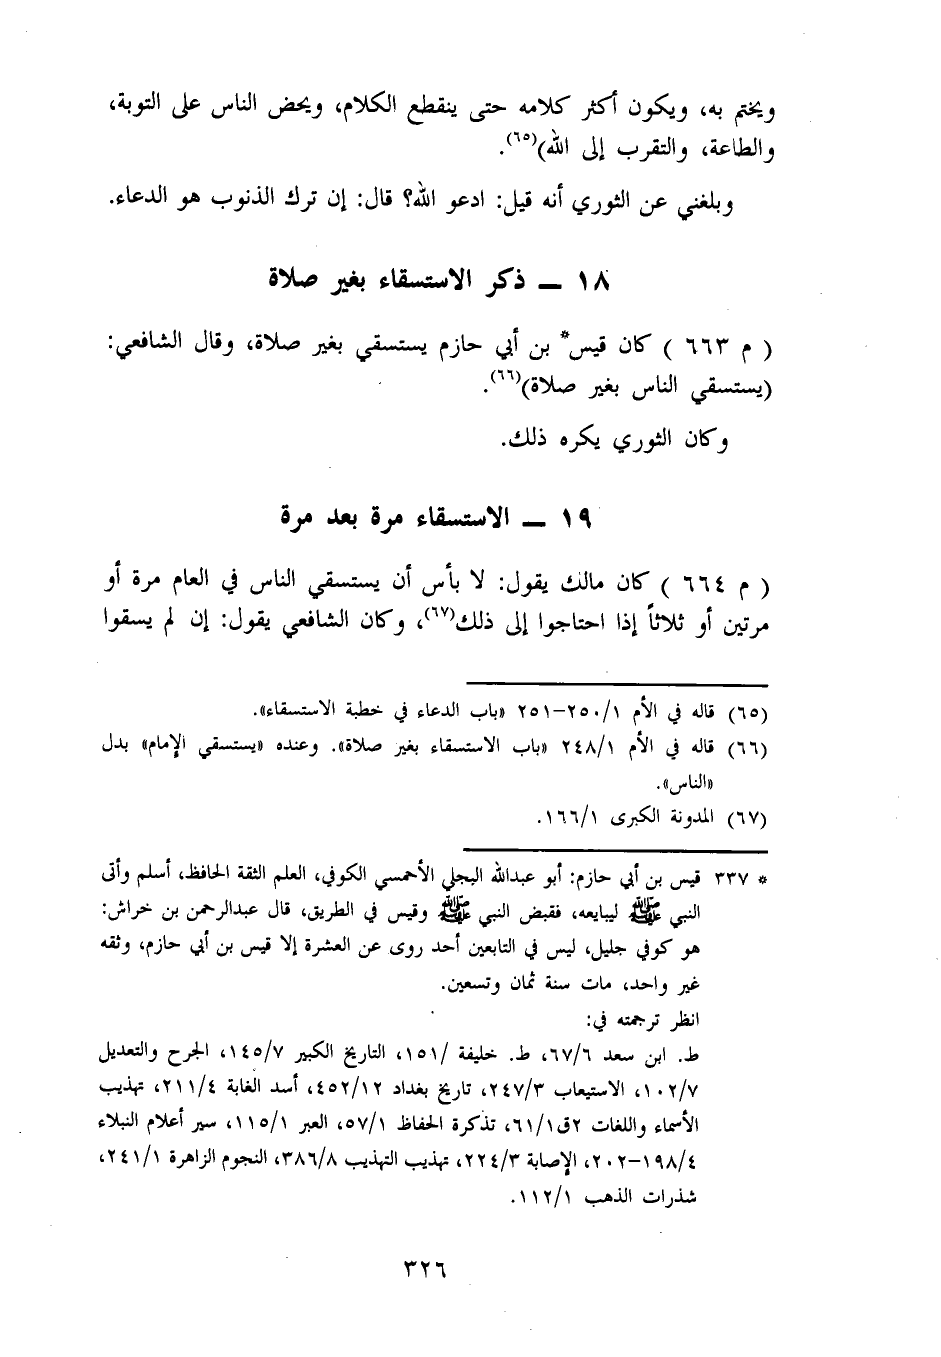 ويختم به، ويكون أكثر كلامه حتى ينقطع الكلام، ويحض الناس على التوبة،
والطاعة، والتقرب إلى الله)(٦٥).
وبلغني عن الثوري أنه قيل: ادعو الله؟ قال: إن ترك الذنوب هو الدعاء.
١٨ ــ ذكر الاستسقاء بغير صلاة
( م ٦٦٣ ) كان قيس* بن أبي حازم يستسقي بغير صلاة، وقال الشافعي:
(يستسقي الناس بغير صلاة)(٦٦).
وكان الثوري يكره ذلك.
١٩ ــ الاستسقاء مرة بعد مرة
( م ٦٦٤ ) كان مالك يقول: لا بأس أن يستسقي الناس في العام مرة أو
مرتين أو ثلاثاً إذا احتاجوا إلى ذلك(٦٧)، وكان الشافعي يقول: إن لم يسقوا
(٦٥) قاله في الأم ٢٥٠/١-٢٥١ «باب الدعاء في خطبة الاستسقاء».
(٦٦) قاله في الأم ٢٤٨/١ «باب الاستسقاء بغير صلاة». وعنده «يستسقي الإمام» بدل
«الناس».
(٦٧) المدونة الكبرى ١٦٦/١.
* ٣٣٧ قيس بن أبي حازم: أبو عبدالله البجلي الأحمسي الكوفي، العلم الثقة الحافظ، أسلم وأتى
النبي ﷺ ليبايعه، فقبض النبي ﷺ وقيس في الطريق، قال عبدالرحمن بن خراش:
هو كوفي جليل، ليس في التابعين أحد روى عن العشرة إلا قيس بن أبي حازم، وثقه
غير واحد، مات سنة ثمان وتسعين.
انظر ترجمته في:
ط. ابن سعد ٦٧/٦، ط. خليفة /١٥١، التاريخ الكبير ١٤٥/٧، الجرح والتعديل
١٠٢/٧، الاستيعاب ٢٤٧/٣، تاريخ بغداد ٤٥٢/١٢، أسد الغابة ٢١١/٤، تهذيب
الأسماء واللغات ٢ق٦١/١، تذكرة الحفاظ ٥٧/١، العبر ١١٥/١، سير أعلام النبلاء
١٩٨/٤-٢٠٢، الإصابة ٢٢٤/٣، تهذيب التهذيب ٣٨٦/٨، النجوم الزاهرة ٢٤١/١،
شذرات الذهب ١١٢/١.
٣٢٦